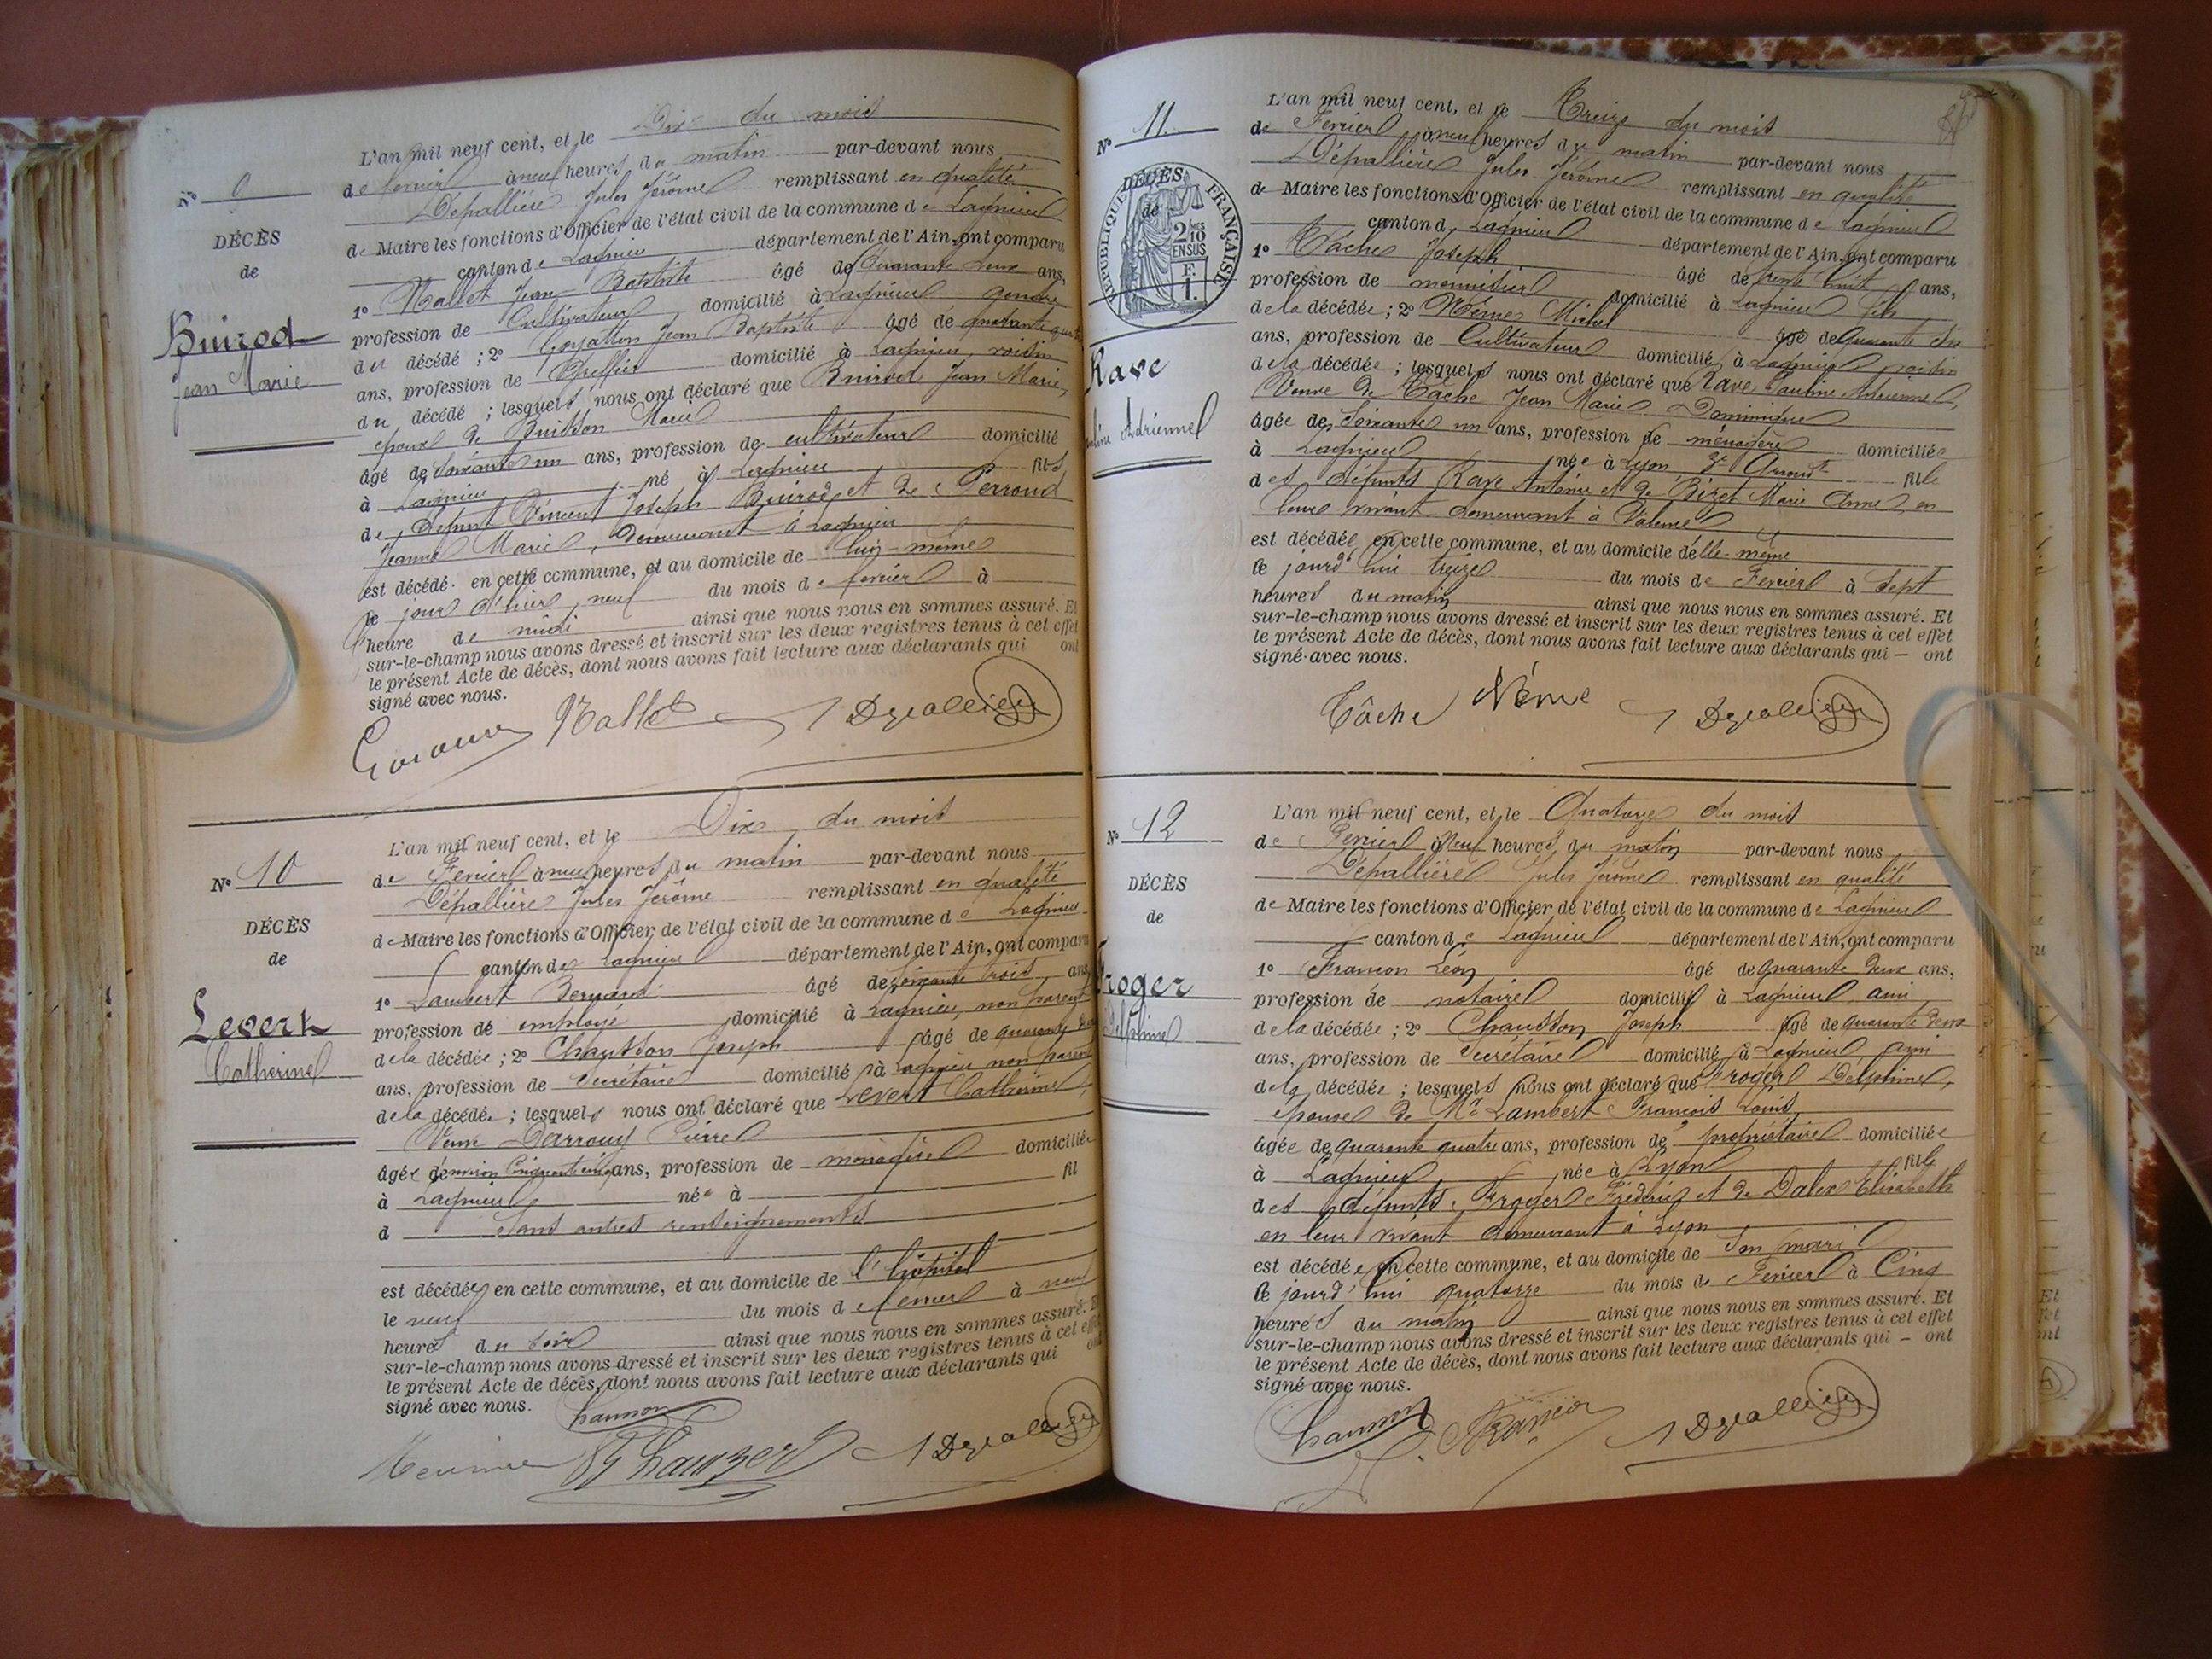 L'an mil neuf cent, et le Dix du mois
de fevrier à neuf heures du matin par-devant nous
Dépallière Jules Jérôme remplissant en qualité
de Maire les fonctions d'Officier de l'état civil de la commune de Lagnieu
canton de Lagnieu département de l'Ain, ont comparu
1º Mallet Jean Baptiste âgé de Quarante deux ans,
profession de Cultivateur domicilié à Lagnieu gendre
du décédé ; 2º Jean Baptiste âgé de quarante quatre
ans, profession de domicilié à Lagnieu, voisin
du décédé ; lesquels nous ont déclaré que Buirod Jean Marie,
époux de Buisson Marie
âgé de soixante un ans, profession de cultivateur domicilié
à Lagnieu né à Lagnieu fils
de Défunt Vincent Joseph Buirod et de Perroud
Jeanne Marie, demeurant à Lagnieu
est décédé en cette commune, et au domicile de lui-même
le jour d'hier neuf du mois de fevrier à
heure de midi ainsi que nous nous en sommes assuré. Et
sur-le-champ nous avons dressé et inscrit sur les deux registres tenus à cet effet
le présent Acte de décès, dont nous avons fait lecture aux déclarants qui ont
signé avec nous.
Mallet
Nº 9
DÉCÈS
de
Buirod
Jean Marie
Nº 10
DÉCÈS
de
Levert
Catherine
L'an mil neuf cent, et le Dix du mois
de Fevrier à neuf heures du matin par-devant nous
Dépallière Jules Jérôme remplissant en qualité
de Maire les fonctions d'Officier de l'état civil de la commune de Lagnieu
canton de Lagnieu département de l'Ain, ont comparu
1º Lambert Bernard âgé de soixante trois ans,
profession de employé domicilié à Lagnieu, non parent
de la décédée ; 2º Chausson Joseph âgé de quarante deux
ans, profession de Secrétaire domicilié à Lagnieu non parent
de la décédée ; lesquels nous ont déclaré que Levert Catherine,
Veuve Darroux Pierre
âgée d'environ ans, profession de ménagère domiciliée
à Lagnieu née à fil
d Sans autres renseignements
est décédée en cette commune, et au domicile de l'hôpital
le neuf du mois de fevrier à neuf
heures du soir ainsi que nous nous en sommes assuré. Et
sur-le-champ nous avons dressé et inscrit sur les deux registres tenus à cet effet
le présent Acte de décès, dont nous avons fait lecture aux déclarants qui ont
signé avec nous.
Chausson
Nº 11
DÉCÈS
de
RÉPUBLIQUE FRANÇAISE
2/10
EN SUS
F.
1.
Rave
Adrienne
L'an mil neuf cent, et le Treize du mois
de Fevrier à neuf heures du matin par-devant nous
Dépallière Jules Jérôme remplissant en qualité
de Maire les fonctions d'Officier de l'état civil de la commune de Lagnieu
canton de Lagnieu département de l'Ain, ont comparu
1º Tâche Joseph âgé de trente huit ans,
profession de menuisier domicilié à Lagnieu fils
de la décédée ; 2º Néme Michel âgé de Quarante six
ans, profession de Cultivateur domicilié à Lagnieu voisin
de la décédée ; lesquels nous ont déclaré que Rave Pauline Adrienne,
Veuve de Tâche Jean Marie Dominique
âgée de Soixante un ans, profession de ménagère domiciliée
à Lagnieu née à Lyon 3e Arrondt fille
des défunts Rave Antoine et de Bizet Marie Anne, en
leur vivant demeurant à Valence
est décédée en cette commune, et au domicile d'elle-même
le jourd'hui treize du mois de Fevrier à Sept
heures du matin ainsi que nous nous en sommes assuré. Et
sur-le-champ nous avons dressé et inscrit sur les deux registres tenus à cet effet
le présent Acte de décès, dont nous avons fait lecture aux déclarants qui – ont
signé avec nous.
Tâche Néme
Nº 12
DÉCÈS
de
Froger
Delphine
L'an mil neuf cent, et le Quatorze du mois
de Fevrier à Neuf heures du matin par-devant nous
Dépallière Jules Jérôme remplissant en qualité
de Maire les fonctions d'Officier de l'état civil de la commune de Lagnieu
canton de Lagnieu département de l'Ain, ont comparu
1º Francon Léon âgé de quarante deux ans,
profession de notaire domicilié à Lagnieu ami
de la décédée ; 2º Chausson Joseph âgé de quarante deux
ans, profession de Secrétaire domicilié à Lagnieu ami
de la décédée ; lesquels nous ont déclaré que Froger Delphine,
épouse de Mr Lambert François Louis,
âgée de quarante quatre ans, profession de propriétaire domiciliée
à Lagnieu née à Lyon fille
des défunts Froger Frédéric et de Dalex Elisabeth
en leur vivant demeurant à Lyon
est décédée en cette commune, et au domicile de Son mari
le jourd'hui quatorze du mois de Fevrier à Cinq
heures du matin ainsi que nous nous en sommes assuré. Et
sur-le-champ nous avons dressé et inscrit sur les deux registres tenus à cet effet
le présent Acte de décès, dont nous avons fait lecture aux déclarants qui – ont
signé avec nous.
Chausson